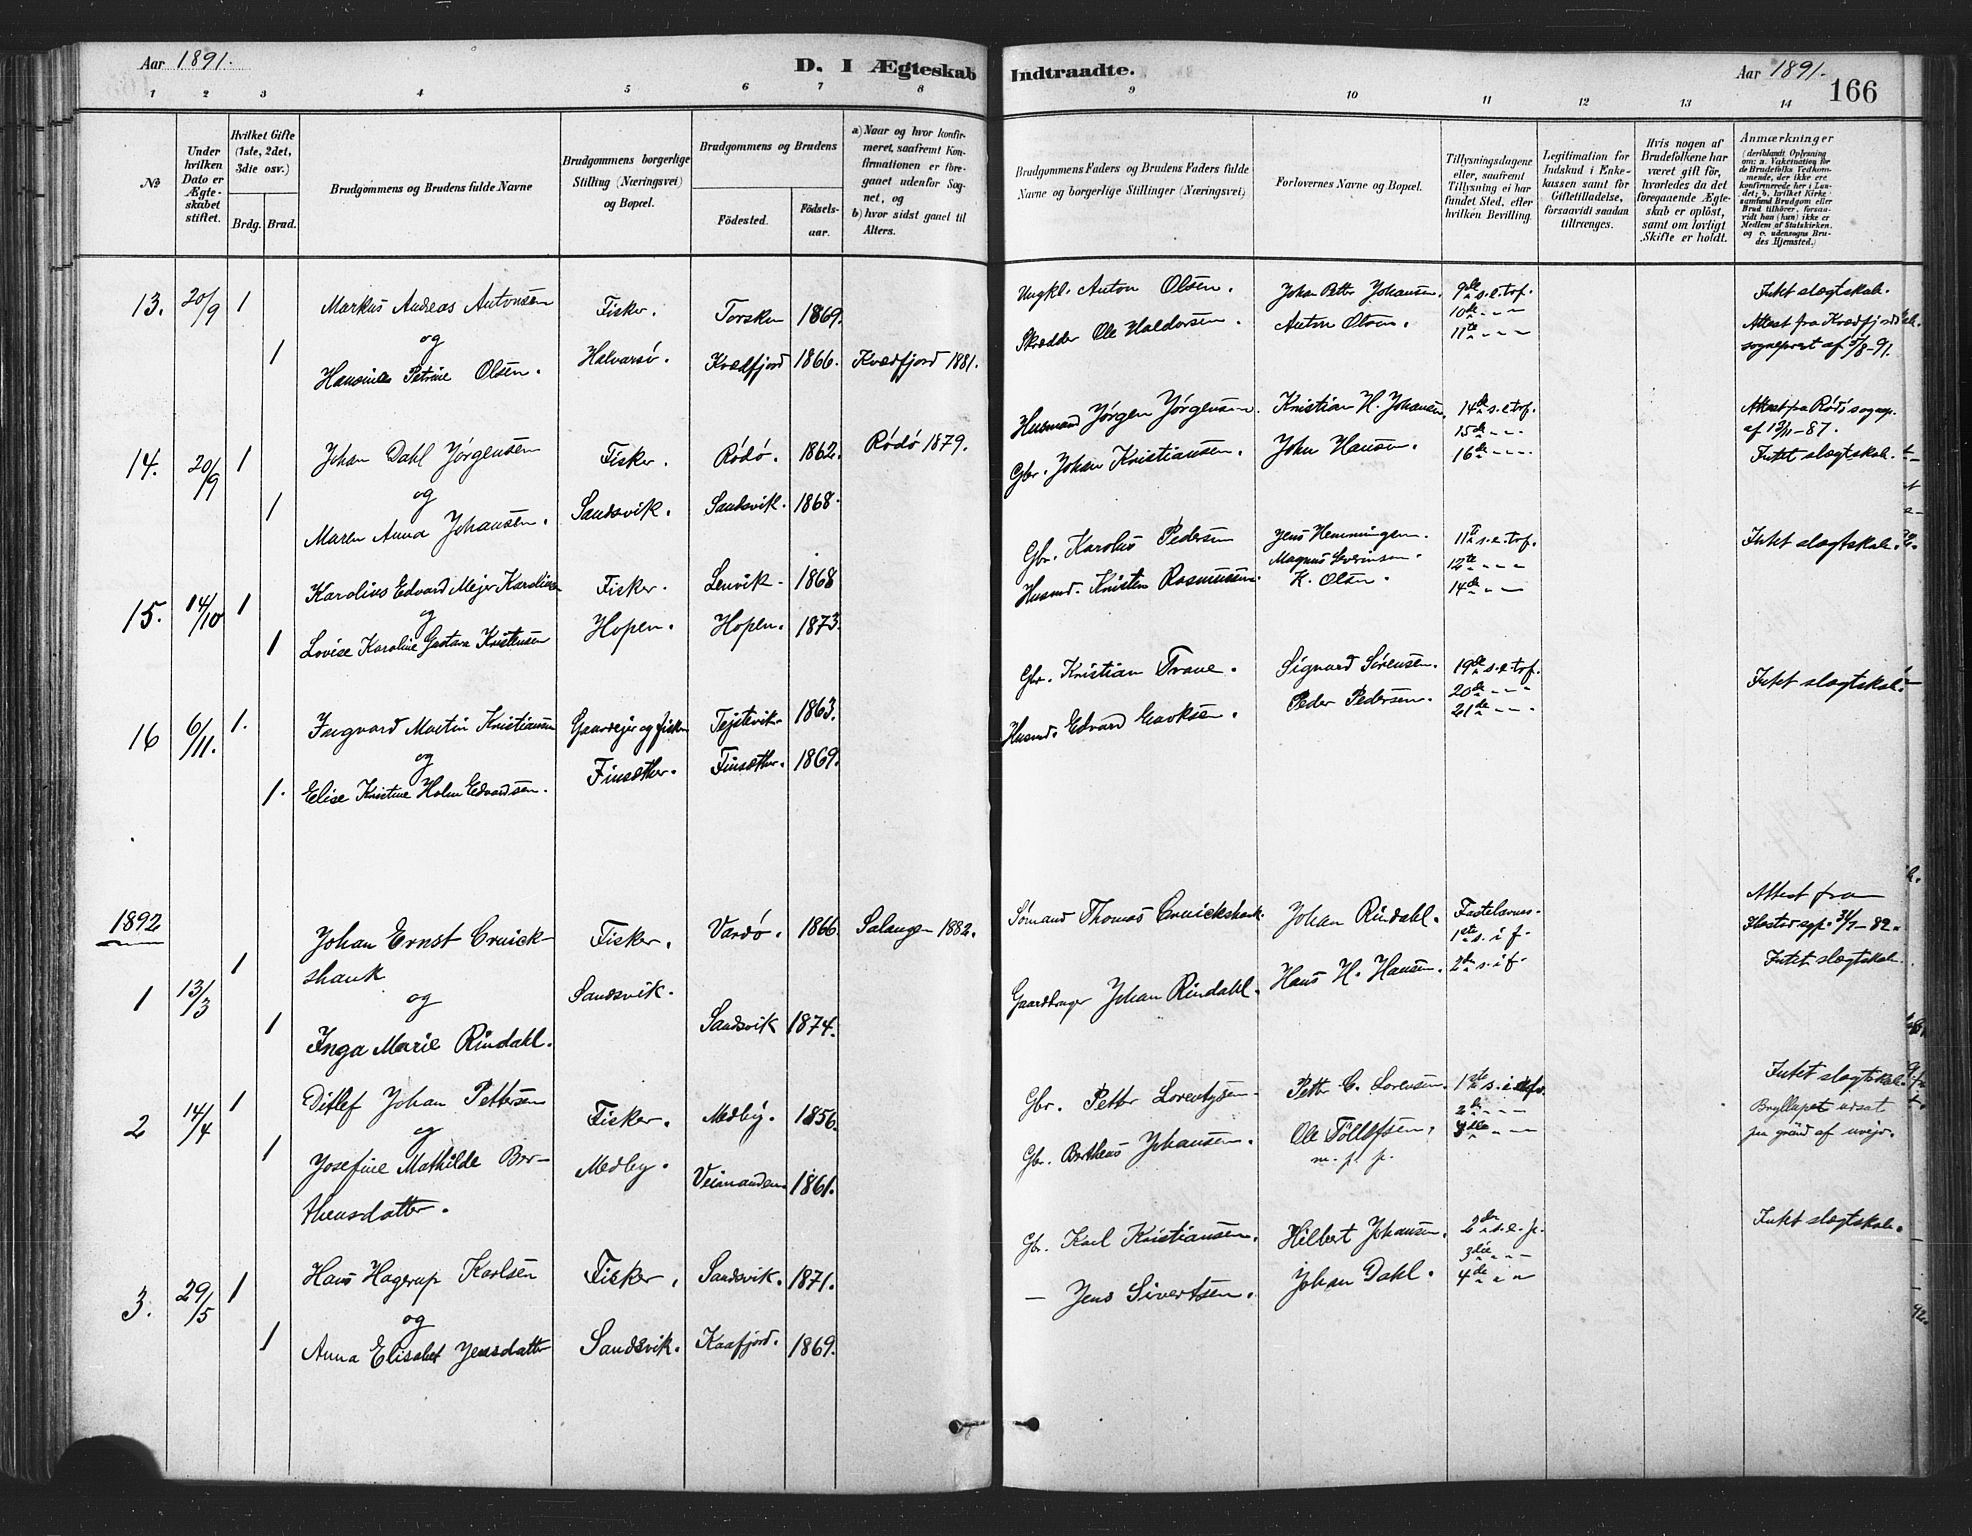 Aar 1891. D. I Ægteskab Indtraadte. Aar 1891. 166
1 2 3 4 5 6 7 8 9 10 11 12 13 14
№
Under hvilken Dato er Ægteskabet stiftet.
Hvilket Gifte (1ste, 2det, 3die osv.)
Brdg. Brud.
Brudgommens og Brudens fulde Navne
Brudgommens borgerlige Stilling (Næringsvei) og Bopæl.
Brudgommens og Brudens
Födested. Födsels-aar.
a) Naar og hvor konfirmeret, saafremt Konfirmationen er foregaaet udenfor Sognet, og
b) hvor sidst gaaet til Alters.
Brudgommens Faders og Brudens Faders fulde Navne og borgerlige Stillinger (Næringsvei)
Forlovernes Navne og Bopæl.
Tillysningsdagene eller, saafremt Tillysning ei har fundet Sted, efter hvilken Bevilling.
Legitimation for Indskud i Enkekassen samt for Giftetilladelse, forsaavidt saadan tiltrænges.
Hvis nogen af Brudefolkene har været gift för, hvorledes da det foregaaende Ægteskab er oplöst, samt om lovligt Skifte er holdt.
Anmærkninger
(deriblandt Oplysning om: a. Vakcination for de Brudefolks Vedkommende, der ikke ere konfirmerede her i Landet; b. hvilket Kirkesamfund Brudgom eller Brud tilhörer, forsaavidt han (hun) ikke er Medlem af Statskirken. og c. udensogns Brudes Hjemsted.)
13. 20/9 1 Markus Andreas Antonsen Fisker. Torsken 1869. Ungkl. Anton Olsen. Johan Petter Johansen. 9de s.e.trf. Intet slægtskab.
og Skrædder Ole Haldorsen. Anton Olsen. 10de " " " Attest fra Kvædfjord
1 Hansine Petrine Olsen. Halvarsö. Kvædfjord 1866. Kvædfjord 1881. 11te " " " sogneprest af 5/8-91.
14. 20/9 1 Johan Dahl Jörgensen Fisker. Rödö. 1862. Rödö 1879. Husmand Jörgen Jörgensen. Kristian H. Johansen. 14de s.e.trf. Attest fra Rödö sognep.
og 15de " " " af 13/11-87.
1 Maren Anna Johansen. Sandsvik. Sandsvik. 1868. Gbr. Johan Kristiansen. John Hansen. 16de " " " Intet slægtskab.
15. 14/10 1 Karolius Edvard Mejer Karoliusen Fisker. Lenvik. 1868 Gbr. Karolius Pedersen Jens Hemmingsen. 11te s.e.trf. Intet slægtskab.
og Magnus Severinsen. 12te " " "
1 Lovise Karoline Gustava Kristensen Hopen. Hopen. 1873. Husmd. Kristen Rasmussen. K. Olsen. 14de " " "
16 6/11. 1. Ingvard Martin Kristiansen Gaardejer og fisker 1863. Gbr. Kristian Trane. Sigvard Sörensen. 19de s.e.trf. Intet slægtskab.
og Peder Pedersen. 20de " " "
1. Elise Kristine Holm Edvardsen. Finsæther. Finsæther. 1869. Husmd. Edvard Enoksen. 21de " " "
1892
1 13/3 1 Johan Ernst Cruick- Fisker. Vardö. 1866 Salangen 1882. Sömand Thomas Cruickshank. Johan Rindahl. Fastelavns- Attest fra
shank 1ste s. i f. Ibestad sgp. 31/7-82.
og Sandsvik. Gaardbruger Johan Rindahl. Hans H. Hansen. 2den s. i f. Intet slægtskab.
1 Inga Marie Rindahl. Sandsvik 1874.
2 14/4 1 Ditlef Johan Pettersen Fisker. Medby. 1856. Gbr. Petter Lorentzsen Petter C. Lorensen. 1ste s. i Intet slægtskab.
og 2den " " " Bryllupet udsat
1 Josefine Mathilde Ber- Medby. 1861. Gbr. Bertheus Johansen. Ole Tollefsen. 3die " " " paa grund af uvejr.
theusdatter. m. p. p.
3. 29/5 1 Hans Hagerup Karlsen Fisker. Sandsvik. 1871. Gbr. Karl Kristiansen. Hilbert Johansen. 2den s.e.p. Intet slægtskab.
og 3die " " "
1 Anna Elisabet Jensdatter Sandsvik. Kaafjord. 1869. — Jens Sivertsen. Johan Dahl. 4de " " "